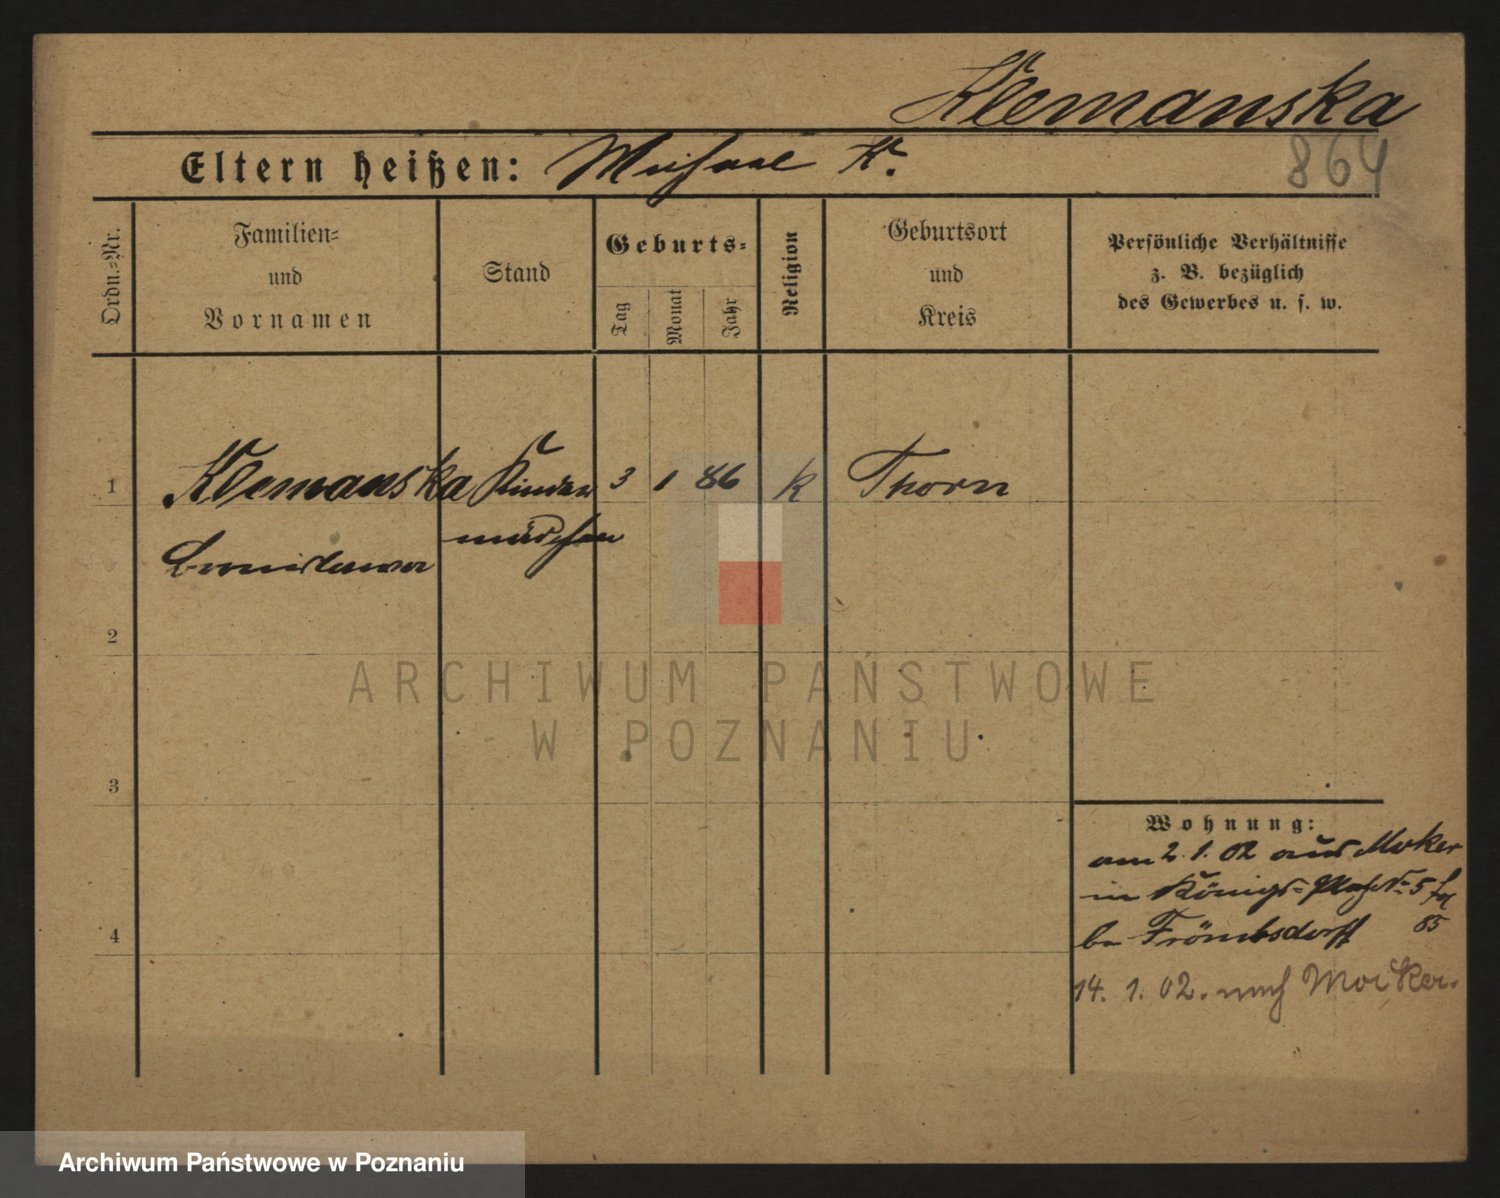 Klemanska
Eltern heißen: Michael K.
864
Ordn.-Nr.
Familien-
und
Vornamen
Stand
Geburts-
Tag
Monat
Jahr
Religion
Geburtsort
und
Kreis
Persönliche Verhältnisse
z. B. bezüglich
des Gewerbes u. s. w.
1
Klemanska Kinder 3 1 86 k Thorn
mädchen
Bronislawa
2
ARCHIWUM PAŃSTWOWE
W POZNANIU
3
Wohnung:
am 2.1.02 aus Moker
in Königs-Platz No 5
85
4
bei Frömbsdorff
14. 1. 02. nach Mocker.
Archiwum Państwowe w Poznaniu